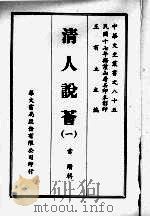 中華文史叢書之八十五
民國十七年掃葉山房石印本影印
王有立主編
清人說薈
(一)
雷瑨輯
華文書局股份有限公司印行